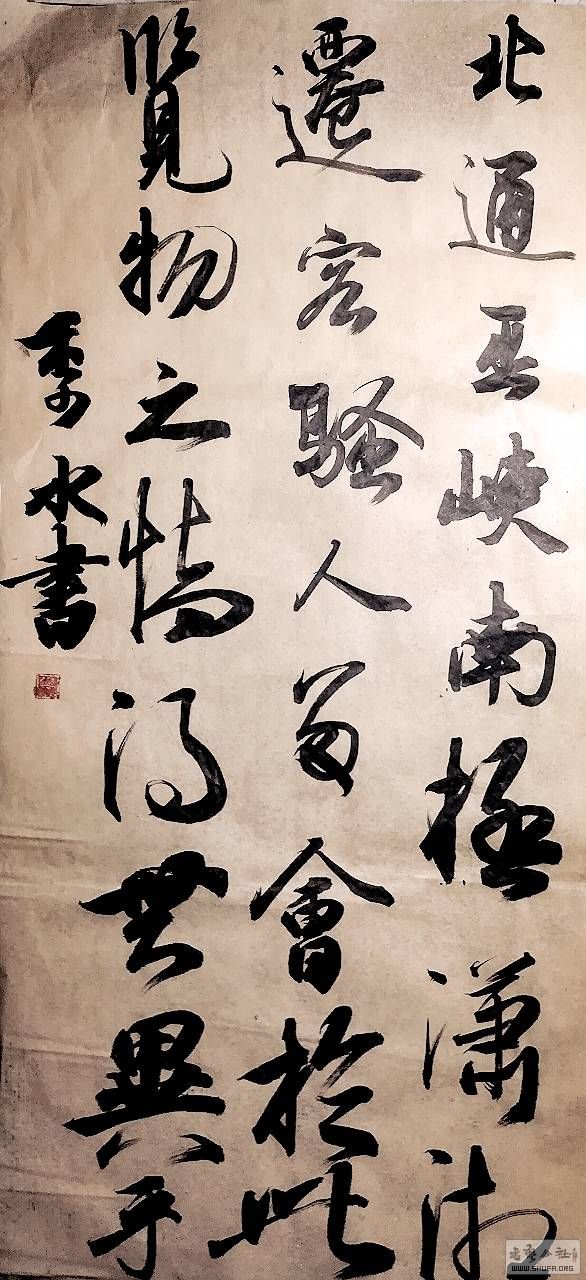 北通巫峽南極瀟湘
遷客騷人多會於此
覽物之情得無異乎
水書
WWW.SHUFA.ORG